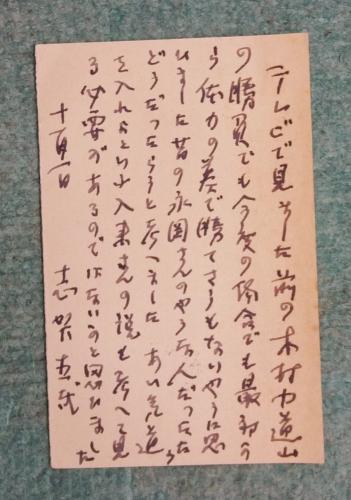 テレビで見ました前の木村力道山
の勝負でも今度の場合でも最初か
ら体力の差で勝てさうもないやうに思
ひました昔の永岡さんのやうな人だったら
どうだったらうと考へました あいきを
を入れろといふ入来さんの説も考へて見
る必要があるのではないかと思ひました
十一月一日 志賀直哉